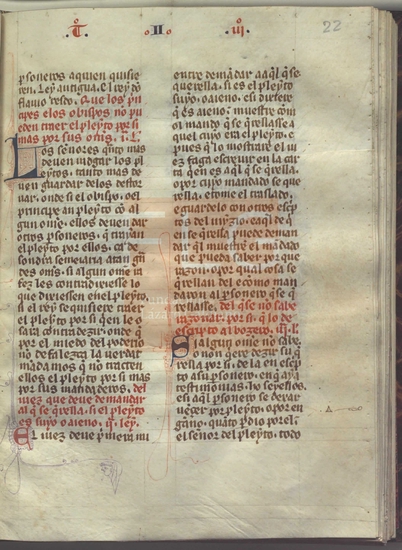 .T. II .iii.
22
personeros aquien quisie
ren. Ley antigua. El rey do
flauio resço. Que los prin
cipes e los obispos no pu
eden tener el pleyto por si
mas por sus omes. i. L.
Los sennores quanto mas
deuen iudgar los pl
eytos, tanto mas de
uen guardar delos destor
uar. onde si el obispo, o el
principe an pleyto con al
gun ome, ellos deuen dar
otros personeros, que trayan
el pleyto por ellos. ca de
sondra semeiaria a tan gran
des omes, si algun ome ra
fez les contradixiesse lo
que dixiessen en el pleyto.
si el rey se quisiere tener
el pleyto por si quien le o
sara contradezir. onde que
por el miedo del poderio
no defalezca la uerdat
mandamos que no tracten
ellos el pleyto por si mas
por sus mandaderos. del
iuez que deue demandar
al que se querella, si el pleyto
es suyo o aieno. ij. ley.
El iuez deue primera mi
entre demandar a aquel que se
querella, si es el pleyto
suyo, o aieno. e si dixiere
que es aieno: muestre com
ol mando que se querellasse a
quel cuyo era el pleyto. e
pues que lo mostrare el iu
ez faga escreuir en la car
ta quen es aquel que se querella.
o por cuyo mandado se que
rella. e tome el traslado.
e guardelo con otros escrip
tos del iuyzio. e aquel de qui
en se querella puede deman
dar quel muestre el mandado
que pueda saber por que
razon, o por qual cosa se
querellan del e como man
daron al personero que se que
rellasse. del que no sabe
razonar por si, que lo de
escripto al bozero. iij. L.
Si algun ome no sabe,
o non quiere dezir su que
rella por si, de la en escrip
to a su personero, en que aya
testimonias. ho seyellos.
e si aquel personero se dexar
uencer por pleyto, o por en
ganno, quanto perdio por el,
el sennor del pleyto, todo